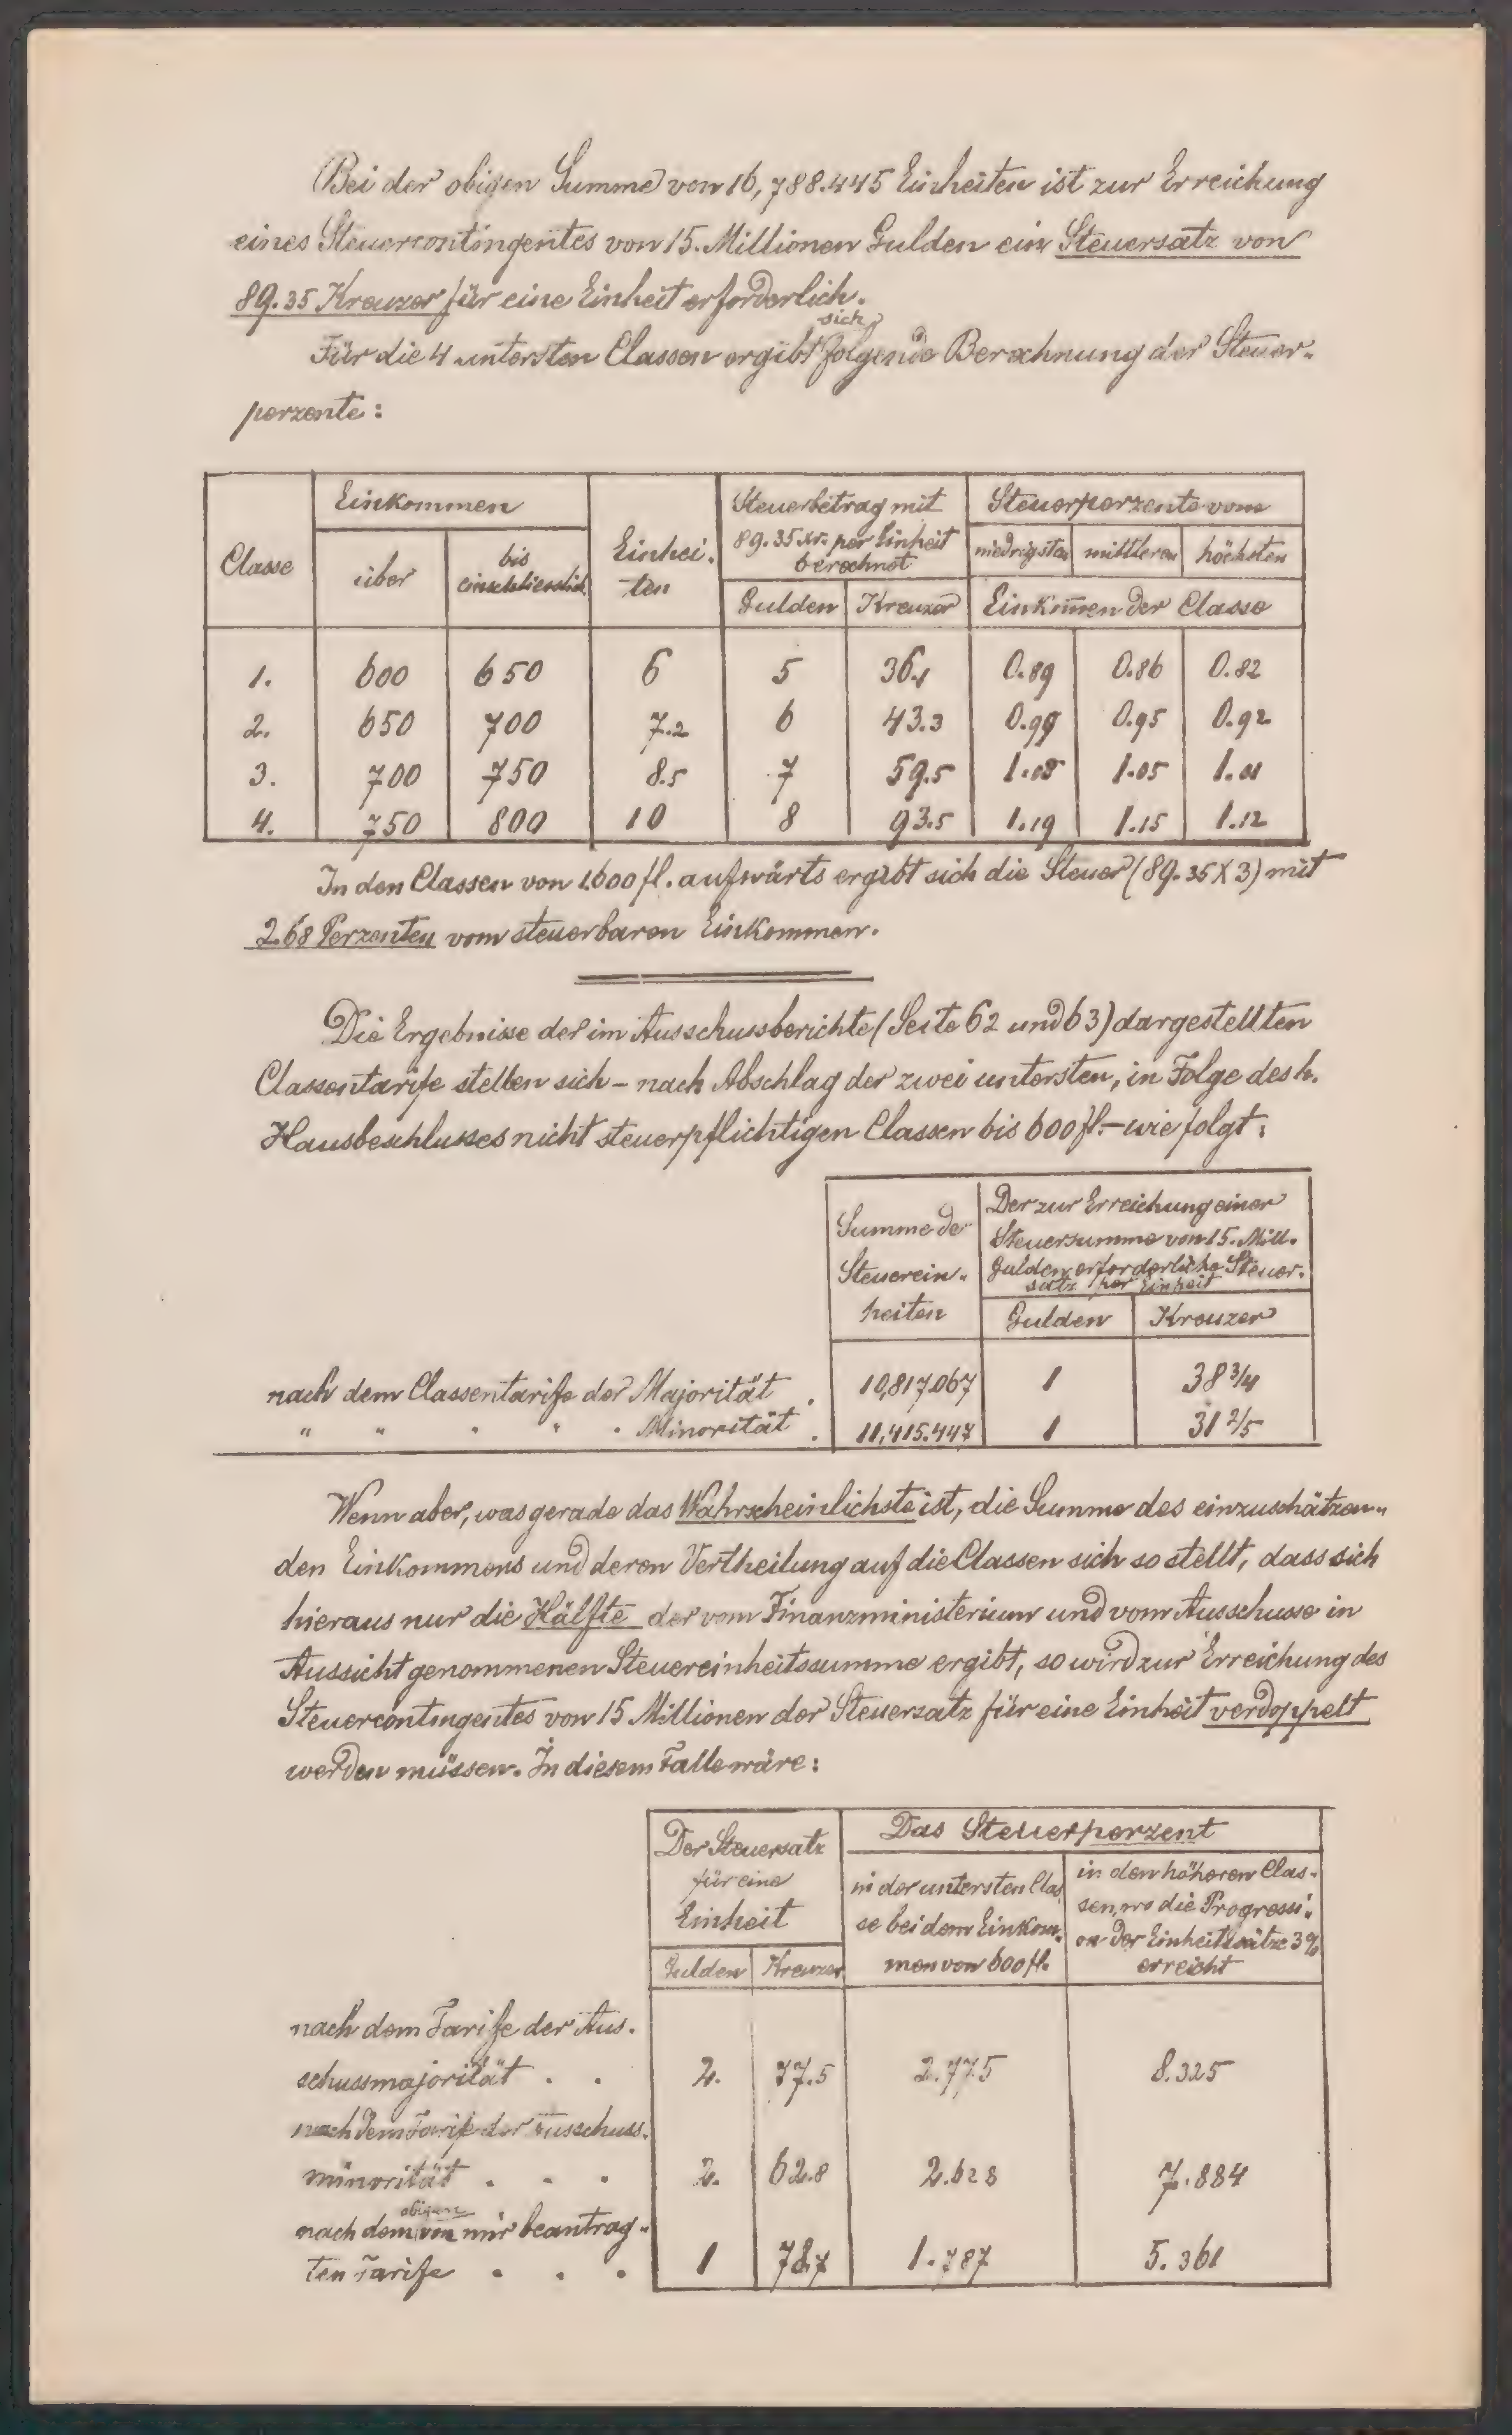 Bei der obigen Summe von 16,788.445 Einheiten ist zur Erreichung
eines Steuercontingentes von 15. Millionen Gulden ein Steuersatz von
89.35 Kreuzer für eine Einheit erforderlich.
sich
Für die 4 untersten Classen ergibt folgende Berechnung der Steuer-
perzente:
Classe Einkommen Einhei- Steuerbetrag mit Steuerperzente vom
über bis ten 89.35 kr. per Einheit niedrigsten mittleren höchsten
einschliesslich berechnet
Gulden Kreuzer Einkom̄en der Classe
1. 600 650 6 5 36.1 0.89 0.86 0.82
2. 650 700 7.2 6 43.3 0.99 0.95 0.92
3. 700 750 8.5 7 59.5 1.08 1.05 1.01
4. 750 800 10 8 93.5 1.19 1.15 1.12
In den Classen von 1600 fl. aufwärts ergibt sich die Steuer (89.35 X 3) mit
2.68 Perzenten vom steuerbaren Einkommen.
Die Ergebnisse der im Ausschussberichte (Seite 62 und 63) dargestellten
Classentarife stellen sich – nach Abschlag der zwei untersten, in Folge des h.
Hausbeschlusses nicht steuerpflichtigen Classen bis 600 fl. – wie folgt:
Summe der Der zur Erreichung einer
Steuerein- Steuersumme von 15. Mill.
heiten Gulden erforderliche Steuer-
satz per Einheit
Gulden Kreuzer
nach dem Classentarife der Majorität . 10,817.067 1 38 3/4
" " " " " Minorität . 11,415.447 1 31 2/5
Wenn aber, was gerade das Wahrscheinlichste ist, die Summe des einzuschätzen-
den Einkommens und deren Vertheilung auf die Classen sich so stellt, dass sich
hieraus nur die Hälfte der vom Finanzministerium und vom Ausschusse in
Aussicht genommenen Steuereinheitssumme ergibt, so wird zur Erreichung des
Steuercontingentes von 15 Millionen der Steuersatz für eine Einheit verdoppelt
werden müssen. In diesem Falle wäre:
Der Steuersatz Das Steuerperzent
für eine in der untersten Clas- in den höheren Clas-
Einheit se bei dem Einkom- sen, wo die Progressi-
Gulden Kreuzer men von 600 fl. on der Einheitssätze 3%
erreicht
nach dem Tarife der Aus-
schussmajorität . . 2. 77.5 2.775 8.325
nach dem Tarife der Ausschuss-
minorität . . . 2. 62.8 2.628 7.884
obigen
nach dem von mir beantrag-
ten Tarife . . . 1 78.7 1.787 5.361